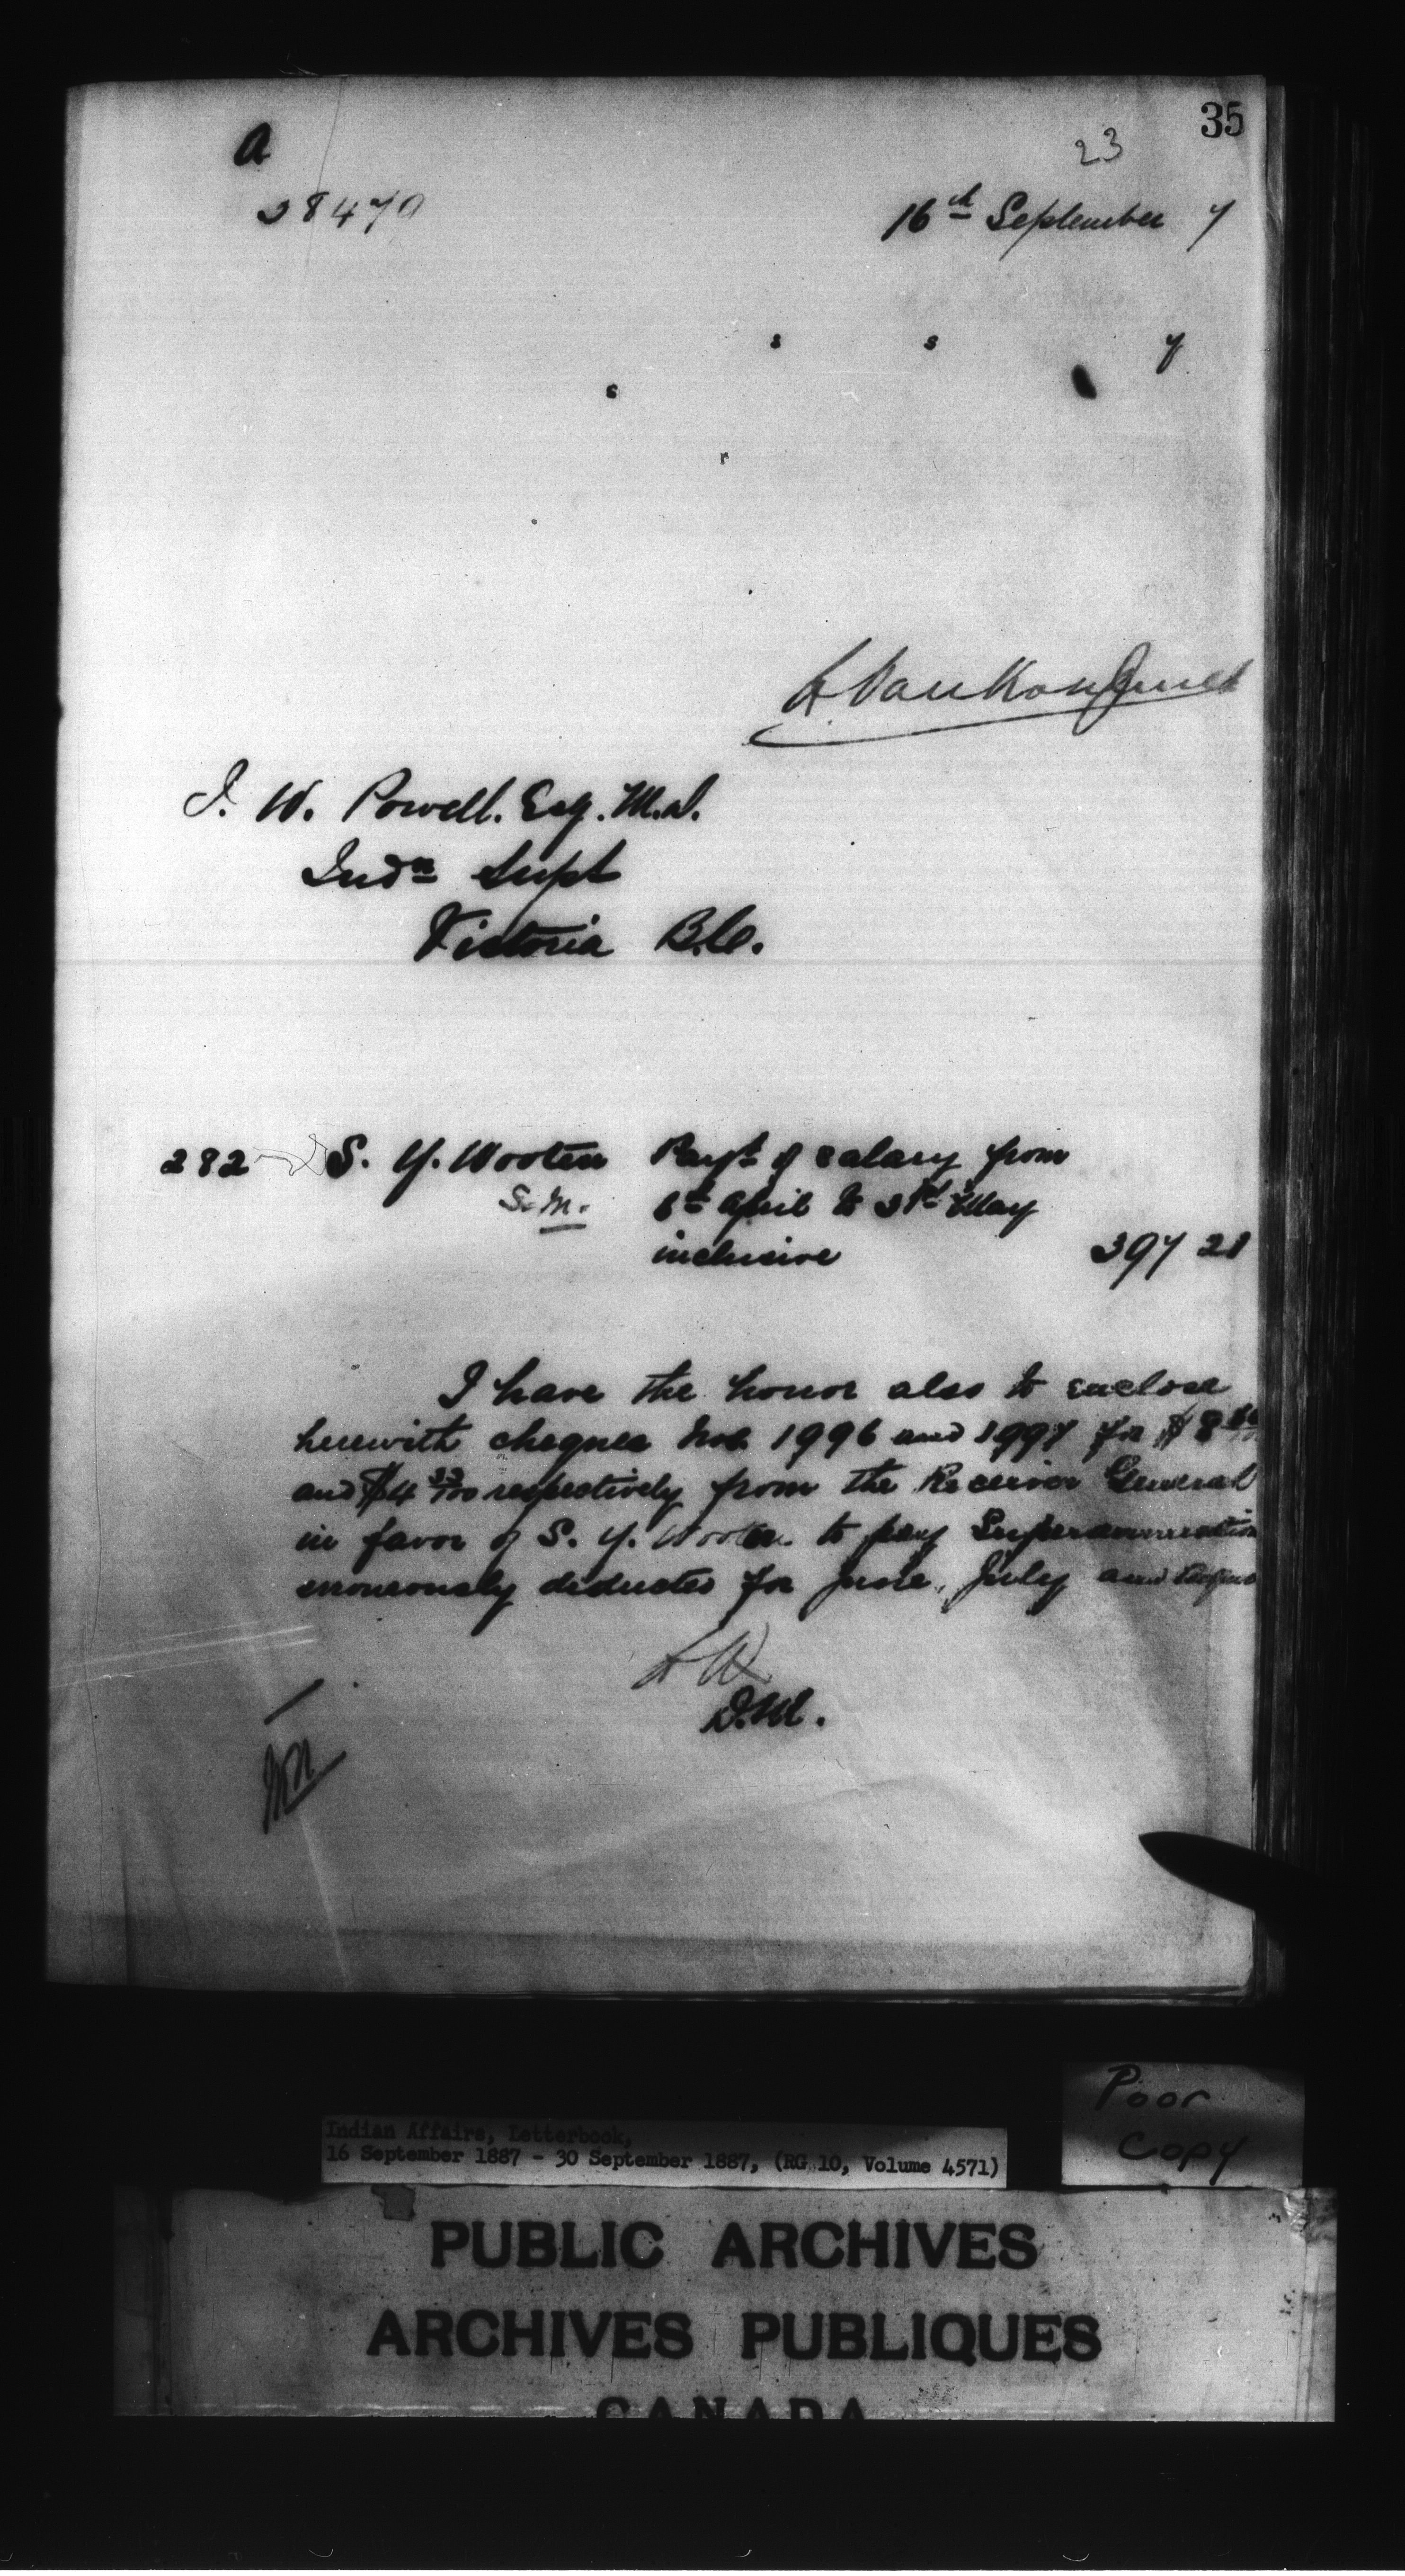 35
23
A
28470
16th September 7
s s 7
s
r
L. VanKoughnet
I. W. Powell. Esq. M.D.
Indn Supt
Victoria B.C.
282 S. Y. Wooten Payt of salary from
S.M. April to 31st May
inclusive 397 21
I have the honor also to enclose
herewith cheques Nos. 1996 and 1997 for $8
and $4 33/100 respectively from the Receiver General
in favor of S. Y. Wooten to pay Superannuation
erroneously deducted for June, July and August
L V
D.M.
Poor
Copy
Indian Affairs, Letterbook,
16 September 1887 - 30 September 1887, (RG 10, Volume 4571)
PUBLIC ARCHIVES
ARCHIVES PUBLIQUES
CANADA